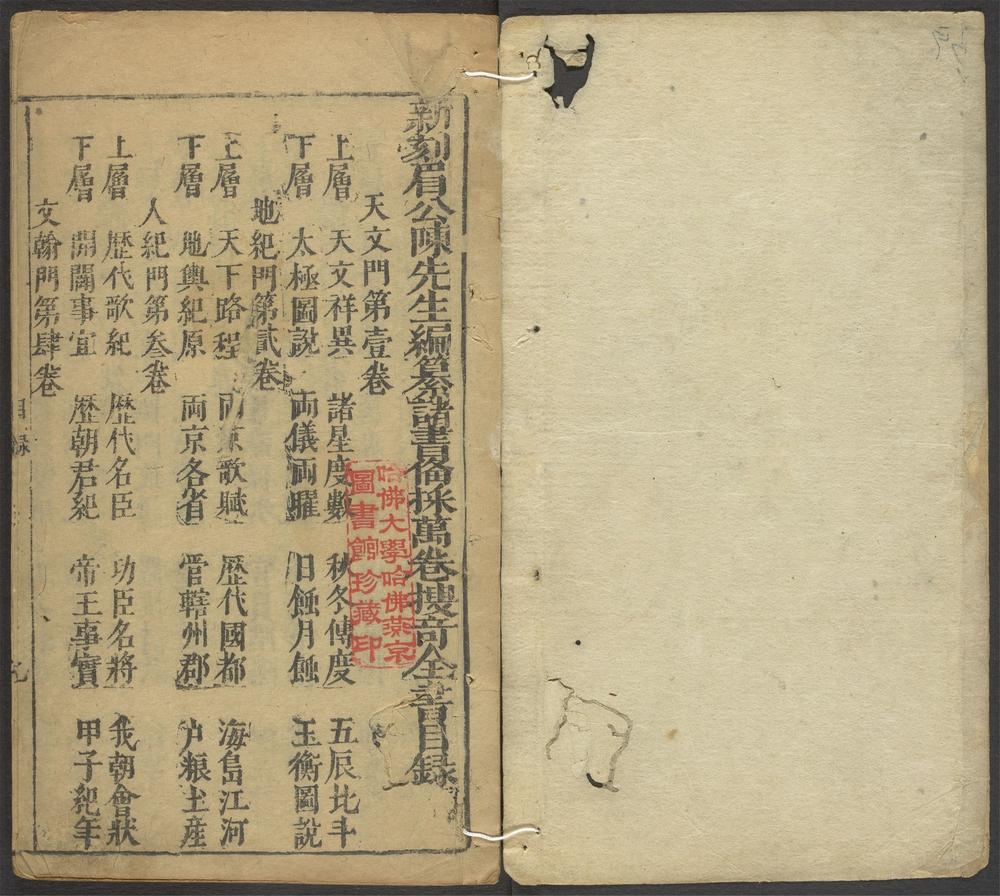 新刻眉公陳先生編纂諸書俻採萬卷搜奇全書目錄
天文門第壹卷
上層 天文祥異 諸星度數 秋冬傳度 五辰北斗
下層 太極圖說 両儀両曜 日蝕月蝕 玉衡圖說
地紀門第貳卷
上層 天下路程 両京歌賦 歷代國都 海島江河
下層 地輿紀原 両京各省 管轄州郡 户粮土產
人紀門第叁卷
上層 歷代歌紀 歷代名臣 功臣名將 我朝會狀
下層 開闢事宜 歷朝君紀 帝王事實 甲子紀年
文翰門第肆卷
目錄
哈佛大學哈佛燕京
圖書館珍藏印